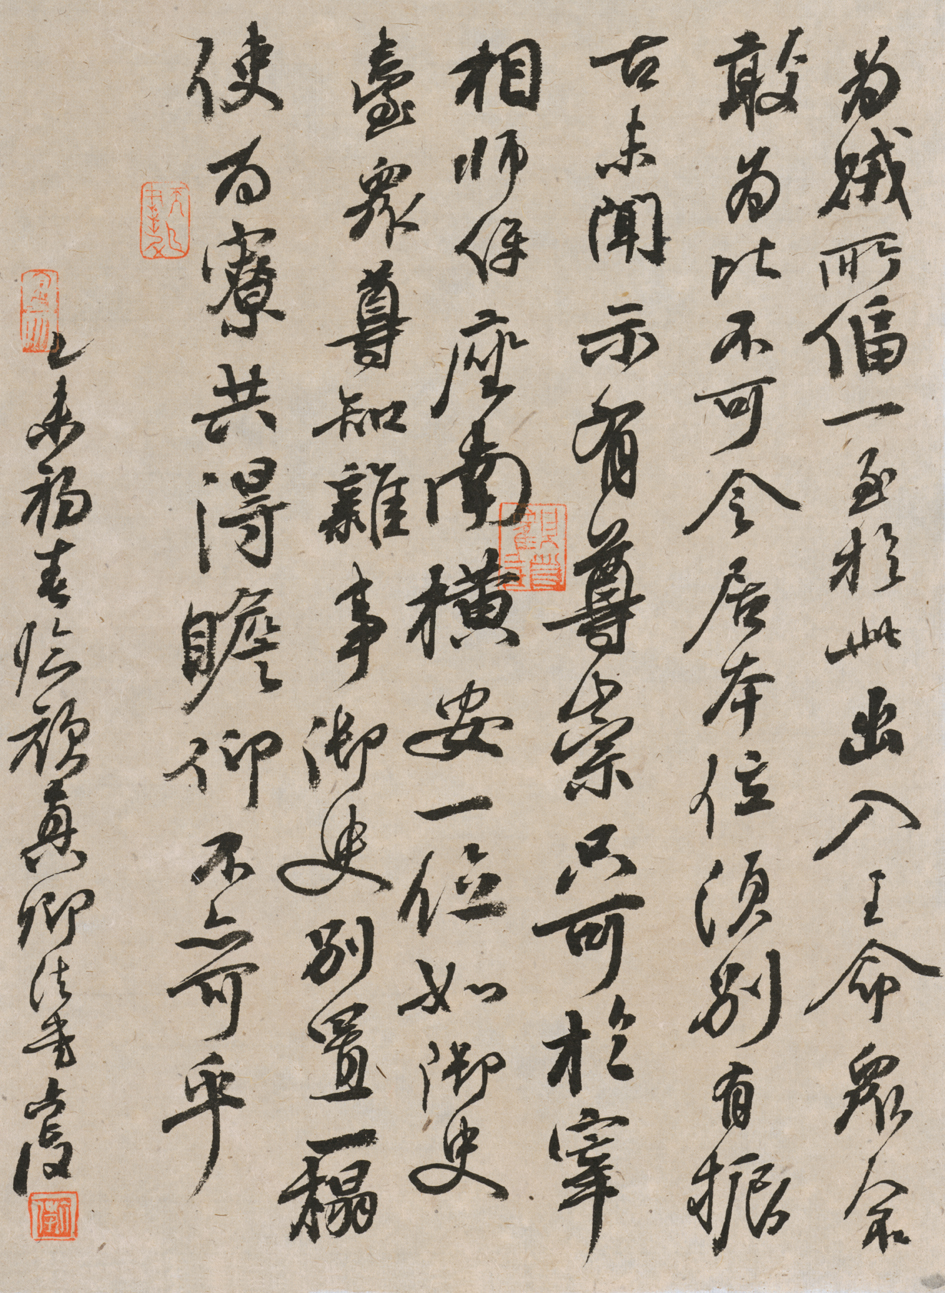 為賊所偪一至於此出入王命眾人不
敢為比不可令居本位須別有振
古未聞示有尊崇只可於宰
相師保座南橫安一位如御史
臺眾尊知雜事御史別置一榻
使百寮共得瞻仰不亦可乎
乙未初春臨顏真卿法書